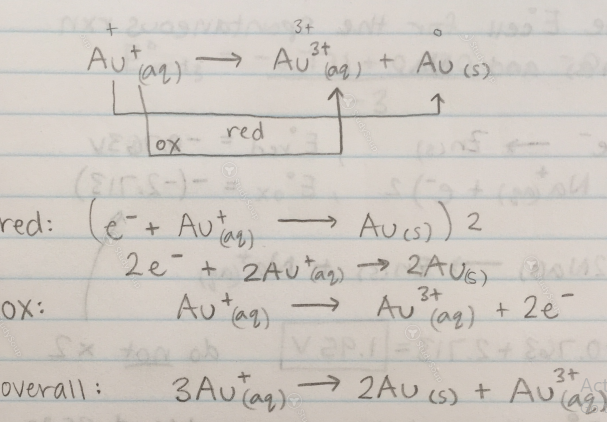 + 3+ 0
Au⁺(aq) → Au³⁺(aq) + Au (s)
red
ox
red: (e⁻ + Au⁺(aq) → Au(s)) 2
2e⁻ + 2Au⁺(aq) → 2Au(s)
ox: Au⁺(aq) → Au³⁺(aq) + 2e⁻
overall: 3Au⁺(aq) → 2Au (s) + Au³⁺(aq)